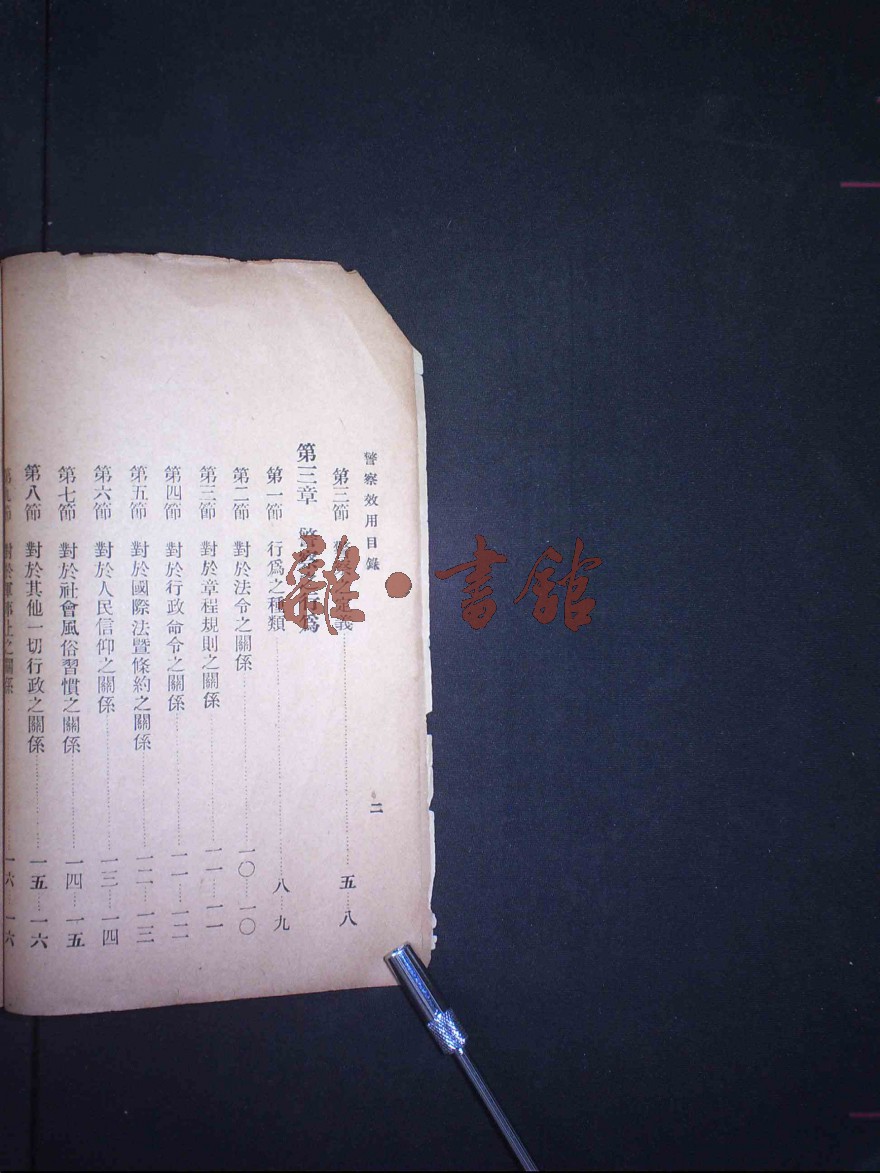 警察效用目錄 二
第三節 警察之定義 五 八
第三章 警察之行爲
第一節 行爲之種類 八 九
第二節 對於法令之關係 一〇 一〇
第三節 對於章程規則之關係 一一 一一
第四節 對於行政命令之關係 一一 一二
第五節 對於國際法暨條約之關係 一二 一三
第六節 對於人民信仰之關係 一三 一四
第七節 對於社會風俗習慣之關係 一四 一五
第八節 對於其他一切行政之關係 一五 一六
第九節 對於 之關係 一六 一六
雜·書館